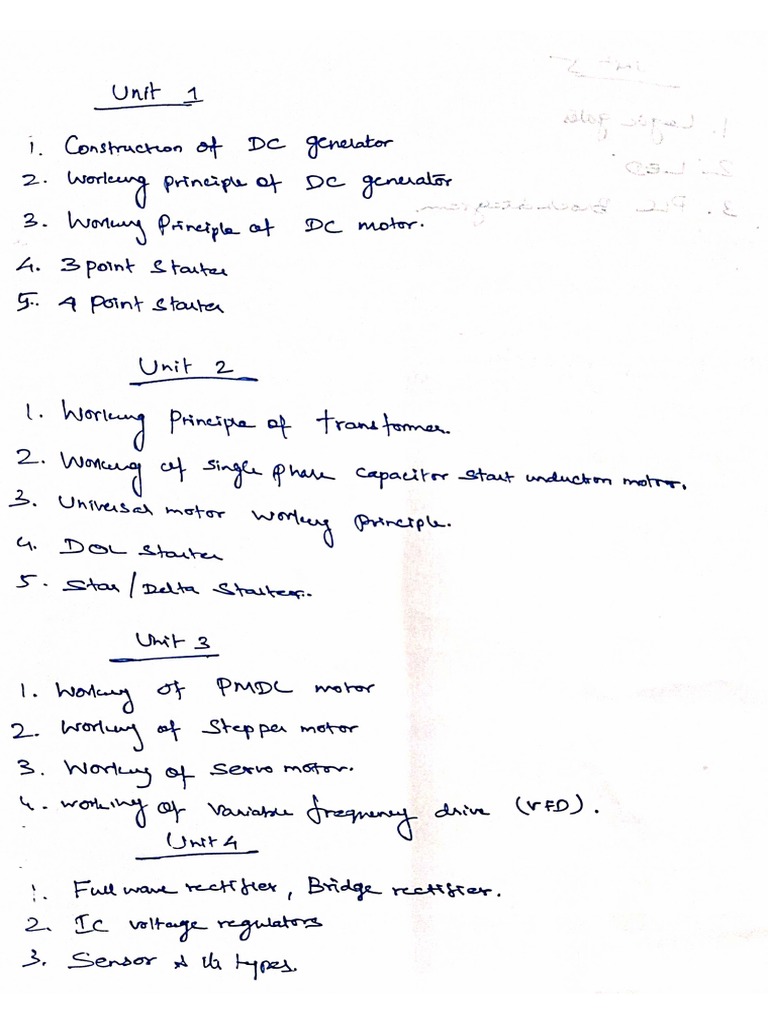 Unit 1
1. Construction of DC generator
2. Working principle of DC generator
3. Working Principle of DC motor.
4. 3 point Starter
5. 4 Point Starter
Unit 2
1. Working Principle of transformer.
2. Working of single phase capacitor start induction motor.
3. Universal motor working principle.
4. DOL Starter
5. Star/Delta Starter.
Unit 3
1. Working of PMDC motor
2. Working of Stepper motor
3. Working of Servo motor.
4. working of Variable frequency drive (VFD).
Unit 4
1. Full wave rectifier, Bridge rectifier.
2. IC voltage regulators
3. Sensor & its types.